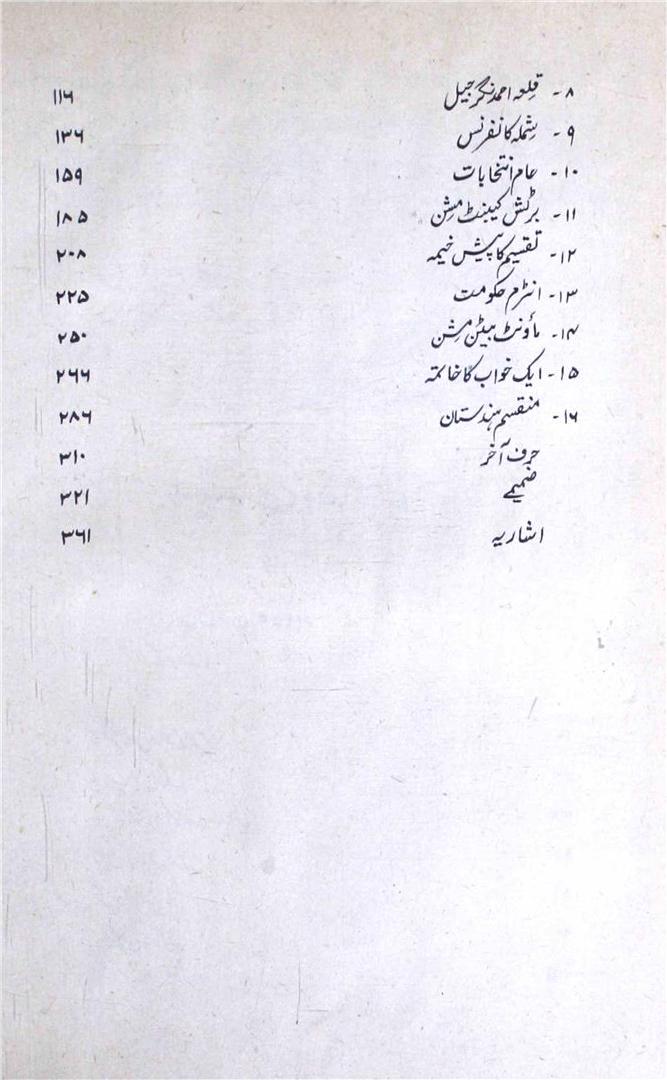 ۸- قلعہ احمد نگر جیل ۱۱۶
۹- شملہ کانفرنس ۱۳۶
۱۰- عام انتخابات ۱۵۹
۱۱- برٹش کیبنٹ مشن ۱۸۵
۱۲- تقسیم کا پیش خیمہ ۲۰۸
۱۳- انٹرم حکومت ۲۲۵
۱۴- ماؤنٹ بیٹن مشن ۲۵۰
۱۵- ایک خواب کا خاتمہ ۲۶۶
۱۶- منقسم ہندستان ۲۸۶
حرف آخر ۳۱۰
ضمیمے ۲۲۱
اشاریہ ۳۶۱